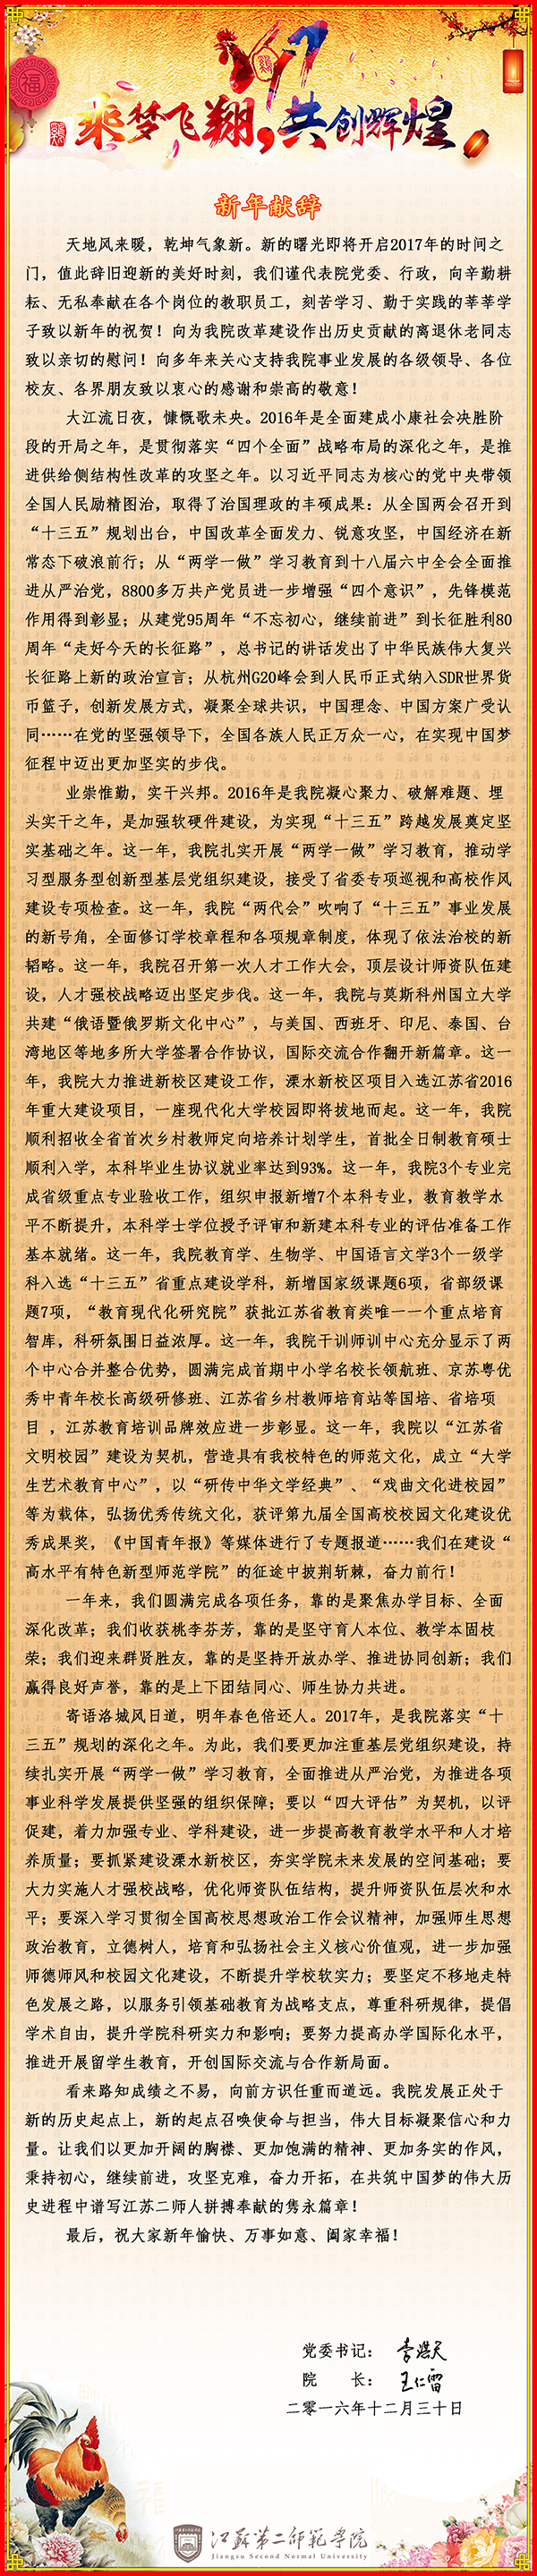 福
鸡
乘梦飞翔,共创辉煌
新年献辞
天地风来暖，乾坤气象新。新的曙光即将开启2017年的时间之
门，值此辞旧迎新的美好时刻，我们谨代表院党委、行政，向辛勤耕
耘、无私奉献在各个岗位的教职员工，刻苦学习、勤于实践的莘莘学
子致以新年的祝贺！向为我院改革建设作出历史贡献的离退休老同志
致以亲切的慰问！向多年来关心支持我院事业发展的各级领导、各位
校友、各界朋友致以衷心的感谢和崇高的敬意！
大江流日夜，慷慨歌未央。2016年是全面建成小康社会决胜阶
段的开局之年，是贯彻落实“四个全面”战略布局的深化之年，是推
进供给侧结构性改革的攻坚之年。以习近平同志为核心的党中央带领
全国人民励精图治，取得了治国理政的丰硕成果：从全国两会召开到
“十三五”规划出台，中国改革全面发力、锐意攻坚，中国经济在新
常态下破浪前行；从“两学一做”学习教育到十八届六中全会全面推
进从严治党，8800多万共产党员进一步增强“四个意识”，先锋模范
作用得到彰显；从建党95周年“不忘初心，继续前进”到长征胜利80
周年“走好今天的长征路”，总书记的讲话发出了中华民族伟大复兴
长征路上新的政治宣言；从杭州G20峰会到人民币正式纳入SDR世界货
币篮子，创新发展方式，凝聚全球共识，中国理念、中国方案广受认
同……在党的坚强领导下，全国各族人民正万众一心，在实现中国梦
征程中迈出更加坚实的步伐。
业崇惟勤，实干兴邦。2016年是我院凝心聚力、破解难题、埋
头实干之年，是加强软硬件建设，为实现“十三五”跨越发展奠定坚
实基础之年。这一年，我院扎实开展“两学一做”学习教育，推动学
习型服务型创新型基层党组织建设，接受了省委专项巡视和高校作风
建设专项检查。这一年，我院“两代会”吹响了“十三五”事业发展
的新号角，全面修订学校章程和各项规章制度，体现了依法治校的新
韬略。这一年，我院召开第一次人才工作大会，顶层设计师资队伍建
设，人才强校战略迈出坚定步伐。这一年，我院与莫斯科州国立大学
共建“俄语暨俄罗斯文化中心”，与美国、西班牙、印尼、泰国、台
湾地区等地多所大学签署合作协议，国际交流合作翻开新篇章。这一
年，我院大力推进新校区建设工作，溧水新校区项目入选江苏省2016
年重大建设项目，一座现代化大学校园即将拔地而起。这一年，我院
顺利招收全省首次乡村教师定向培养计划学生，首批全日制教育硕士
顺利入学，本科毕业生协议就业率达到93%。这一年，我院3个专业完
成省级重点专业验收工作，组织申报新增7个本科专业，教育教学水
平不断提升，本科学士学位授予评审和新建本科专业的评估准备工作
基本就绪。这一年，我院教育学、生物学、中国语言文学3个一级学
科入选“十三五”省重点建设学科，新增国家级课题6项，省部级课
题7项，“教育现代化研究院”获批江苏省教育类唯一一个重点培育
智库，科研氛围日益浓厚。这一年，我院干训师训中心充分显示了两
个中心合并整合优势，圆满完成首期中小学名校长领航班、京苏粤优
秀中青年校长高级研修班、江苏省乡村教师培育站等国培、省培项
目 ，江苏教育培训品牌效应进一步彰显。这一年，我院以“江苏省
文明校园”建设为契机，营造具有我校特色的师范文化，成立“大学
生艺术教育中心”，以“研传中华文学经典”、“戏曲文化进校园”
等为载体，弘扬优秀传统文化，获评第九届全国高校校园文化建设优
秀成果奖，《中国青年报》等媒体进行了专题报道……我们在建设“
高水平有特色新型师范学院”的征途中披荆斩棘，奋力前行！
一年来，我们圆满完成各项任务，靠的是聚焦办学目标、全面
深化改革；我们收获桃李芬芳，靠的是坚守育人本位、教学本固枝
荣；我们迎来群贤胜友，靠的是坚持开放办学、推进协同创新；我们
赢得良好声誉，靠的是上下团结同心、师生协力共进。
寄语洛城风日道，明年春色倍还人。2017年，是我院落实“十
三五”规划的深化之年。为此，我们要更加注重基层党组织建设，持
续扎实开展“两学一做”学习教育，全面推进从严治党，为推进各项
事业科学发展提供坚强的组织保障；要以“四大评估”为契机，以评
促建，着力加强专业、学科建设，进一步提高教育教学水平和人才培
养质量；要抓紧建设溧水新校区，夯实学院未来发展的空间基础；要
大力实施人才强校战略，优化师资队伍结构，提升师资队伍层次和水
平；要深入学习贯彻全国高校思想政治工作会议精神，加强师生思想
政治教育，立德树人，培育和弘扬社会主义核心价值观，进一步加强
师德师风和校园文化建设，不断提升学校软实力；要坚定不移地走特
色发展之路，以服务引领基础教育为战略支点，尊重科研规律，提倡
学术自由，提升学院科研实力和影响；要努力提高办学国际化水平，
推进开展留学生教育，开创国际交流与合作新局面。
看来路知成绩之不易，向前方识任重而道远。我院发展正处于
新的历史起点上，新的起点召唤使命与担当，伟大目标凝聚信心和力
量。让我们以更加开阔的胸襟、更加饱满的精神、更加务实的作风，
秉持初心，继续前进，攻坚克难，奋力开拓，在共筑中国梦的伟大历
史进程中谱写江苏二师人拼搏奉献的隽永篇章！
最后，祝大家新年愉快、万事如意、阖家幸福！
党委书记： 李洪天
院 长： 王仁雷
二零一六年十二月三十日
江苏第二师范学院
Jiangsu Second Normal University